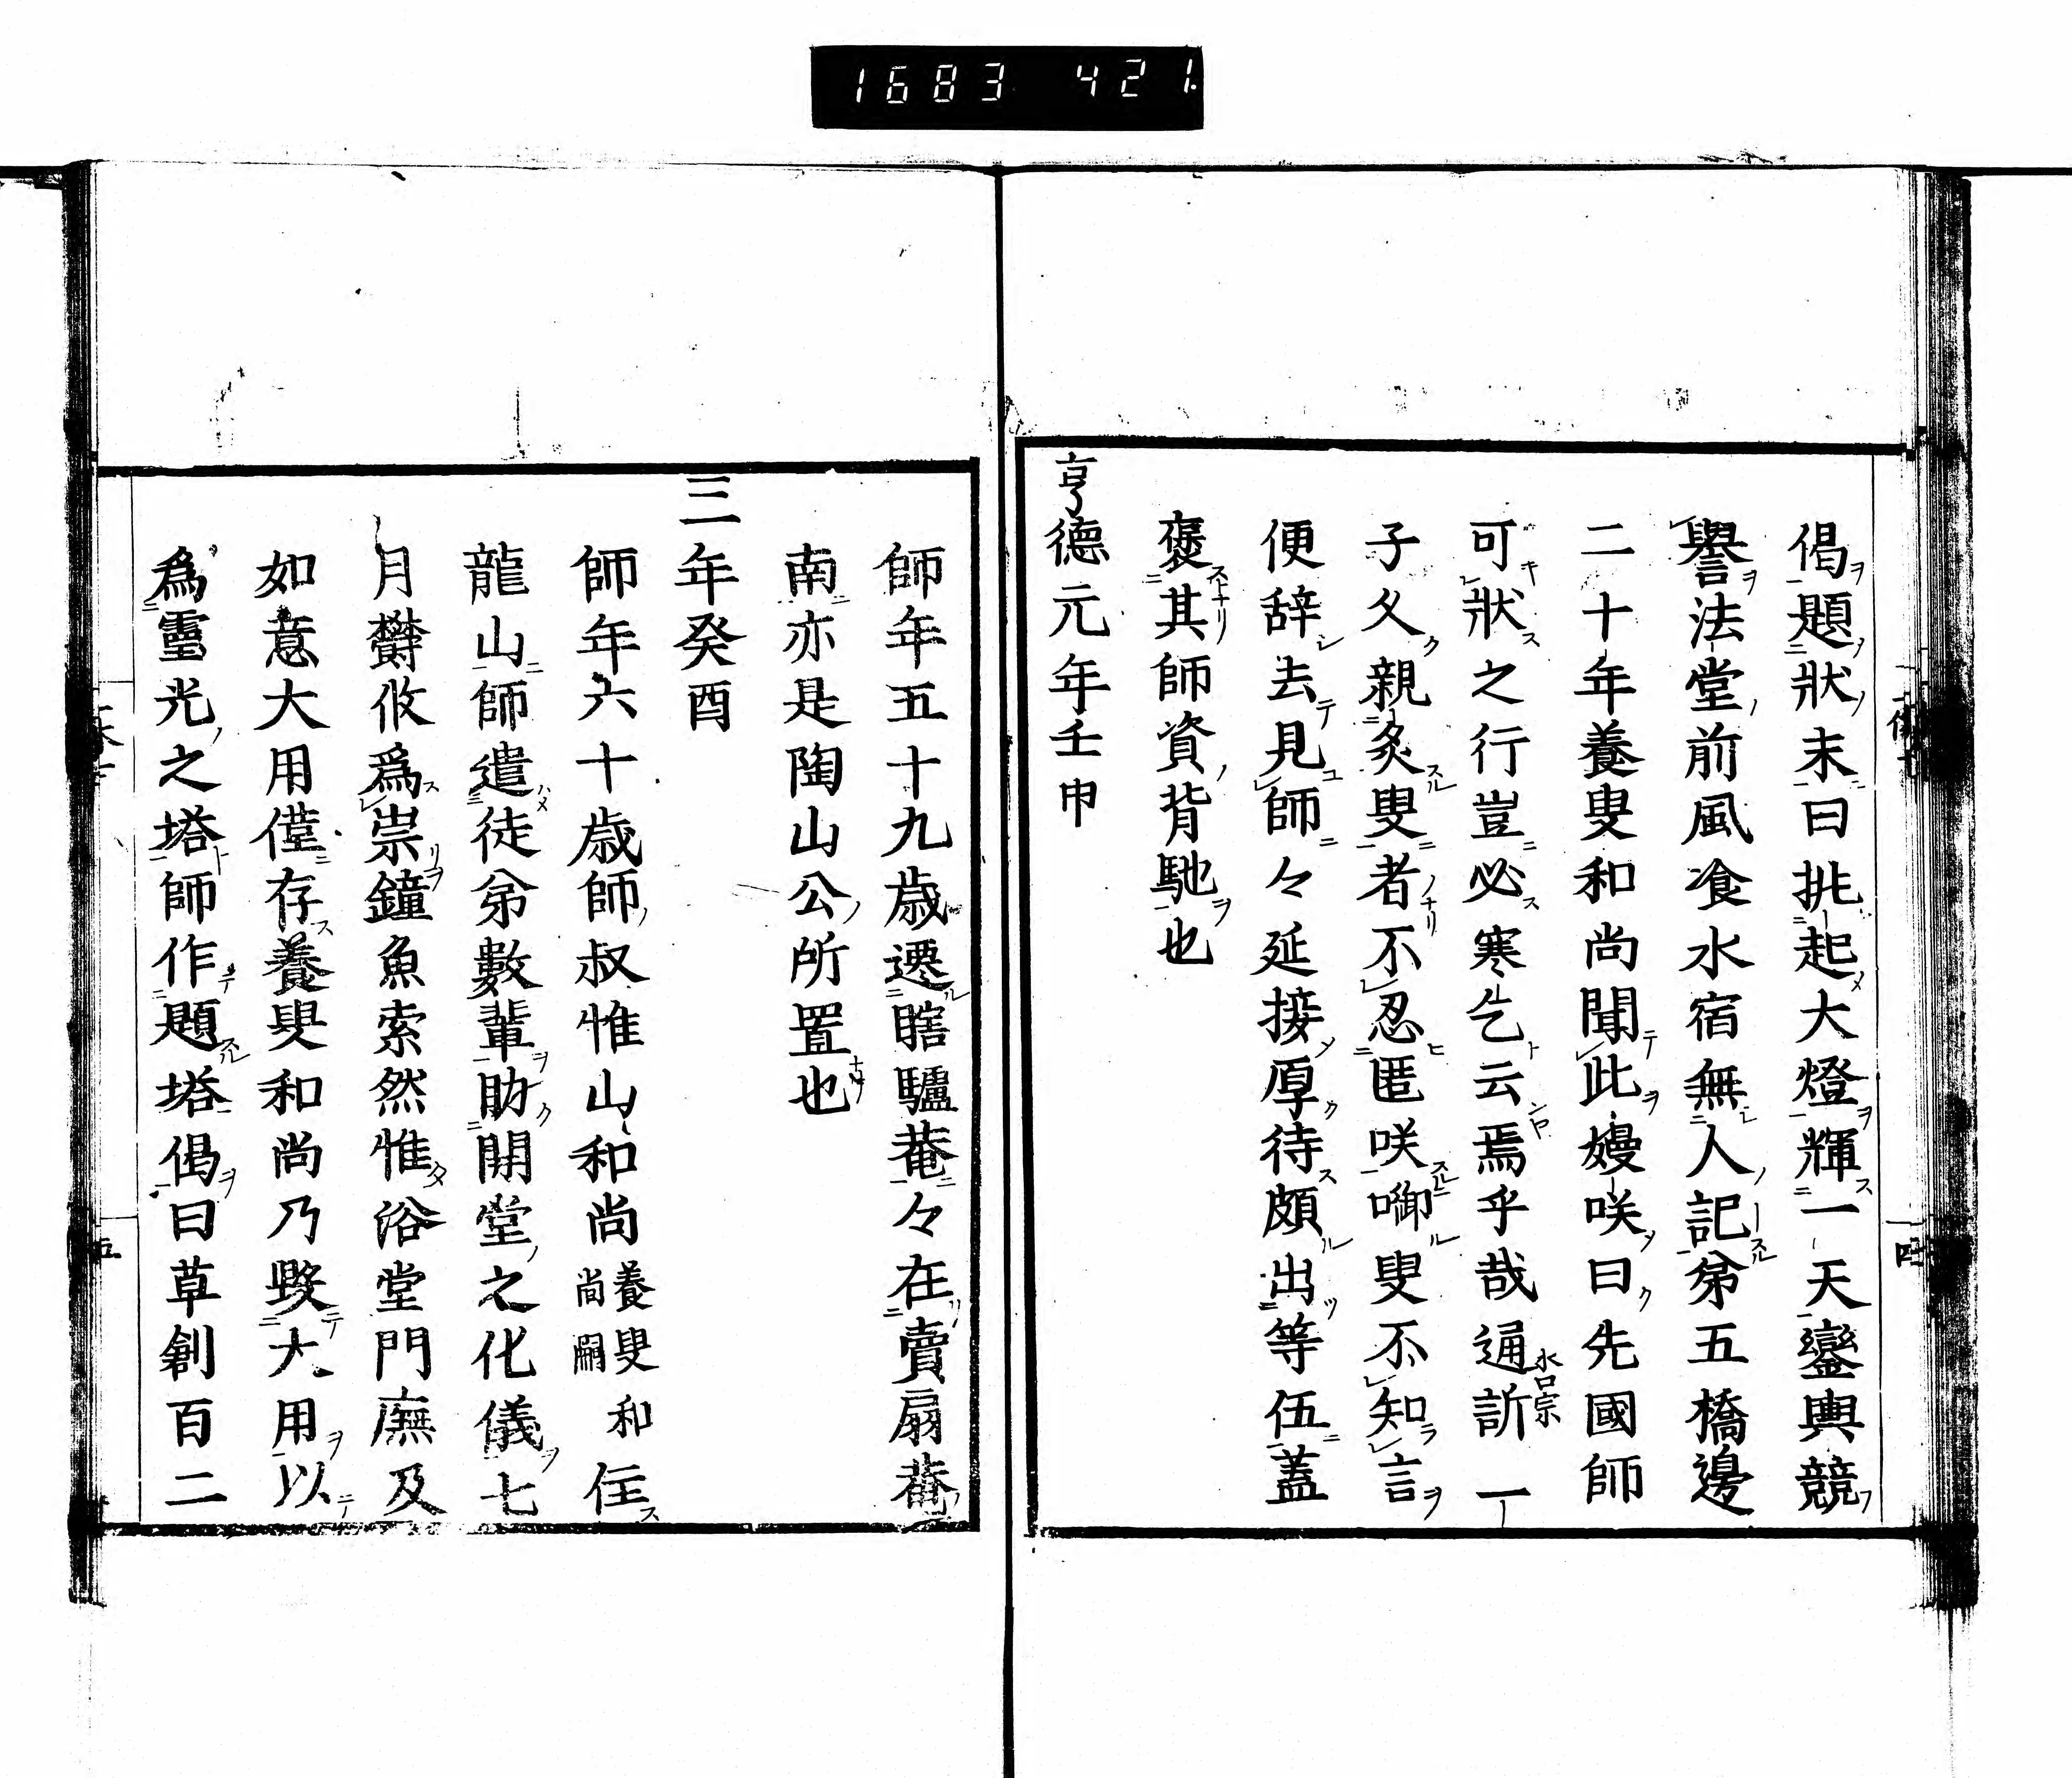 1683 421
偈題狀末曰挑起大燈輝一天鑾輿競
譽法堂前風飡水宿無人記苐五橋邊
二十年養叟和尚聞此嫚咲曰先國師
可狀之行豈必寒乞云焉乎哉通訢一
子久親炙叟者不忍匿咲啣叟不知言
便辞去見師々延接厚待頗出等伍蓋
褒其師資背馳也
亨德元年壬申
師年五十九歳遷瞎驢菴々在賣扇菴
南亦是陶山公所置也
三年癸酉
師年六十歳師叔惟山和尚養叟和尚嗣住
龍山師遣徒弟數輩助開堂之化儀七
月欝攸爲崇鐘魚索然惟浴堂門廡及
如意大用僅存養叟和尚乃毀大用以
爲靈光之塔師作題塔偈曰草創百二